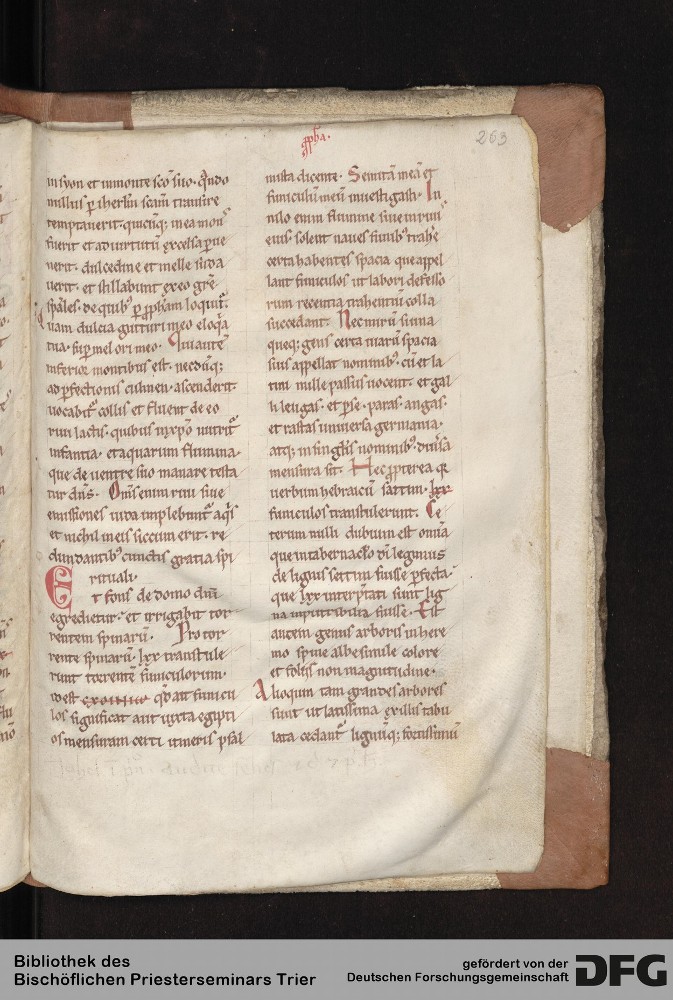 ꝓpha.
263
in syon et inmonte sc̄o suo. Q̄ndo
nullus ꝑ iherlm̄ scam̄ transire
temptauerit. quicūq; in ea mons
fuerit et ad uirtutū excelsa ꝑue
nerit. dulcedine et melle suda
uerit. et stillabunt ex eo gr̄e
sp̄ales. de quib; ꝑ ꝓpham loquit᷑.
Quam dulcia gutturi meo eloq̄a
tua. suꝑ mel ori meo. Qui autē
inferior montibus est. necdūq;
ad ꝑfectionis culmen. ascenderit.
uocabit᷑ collis et fluent de eo
riui lactis. quibus in xp̄o nutrit᷑
infantia. et aquarum flumina.
que de uentre suo manare testa
tur dn̄s. Om̄s enim riui siue
emissiones iuda implebunt᷑ aq̄s
et nichil in eis siccum erit. re
dundantib; cunctis gratia spi
rituali.
Et fons de domo dn̄i
egredietur. et irrigabit tor
rentem spinarū. Pro tor
rente spinarū. lxx transtule
runt torrentē funiculorum.
id est qd̄ aut funicu
los significat aut iuxta egipti
os mensuram certi itineris psal
mista dicente. Semitā meā et
funiculū meū inuestigasti. In
nilo enim flumine siue in riuis
eius. solent naues funib; trahe
certa habentes spacia que appel
lant funiculos ut labori defesso
rum recentia trahentiū colla
succedant. Nec mirū si una
queq; gens certa uiarū spacia
suis appellat nominib;. cū et la
tini mille passus uocent. et gal
li leugas. et perse. paras. angas.
et rastas uniuersa germania.
atq; in singlis nominib; diuisa
mensura sit. Hec ꝓpterea qr
uerbum hebraicū sattim. lxx
funiculos transtulerunt. Ce
terum nulli dubium est omīa
que in tabernaclo di legimus
de lignis settim fuisse ꝑfecta.
que lxx interp̄tati sunt lig
na inputribilia fuisse. Est
autem genus arboris in here
mo spine albe simile colore
et foliis non magnitudine.
Alioquin tam grandes arbores
sunt ut latissima ex illis tabu
lata cedant᷑ lignūq; fortissimū
Bibliothek des
Bischöflichen Priesterseminars Trier
gefördert von der
Deutschen Forschungsgemeinschaft
DFG